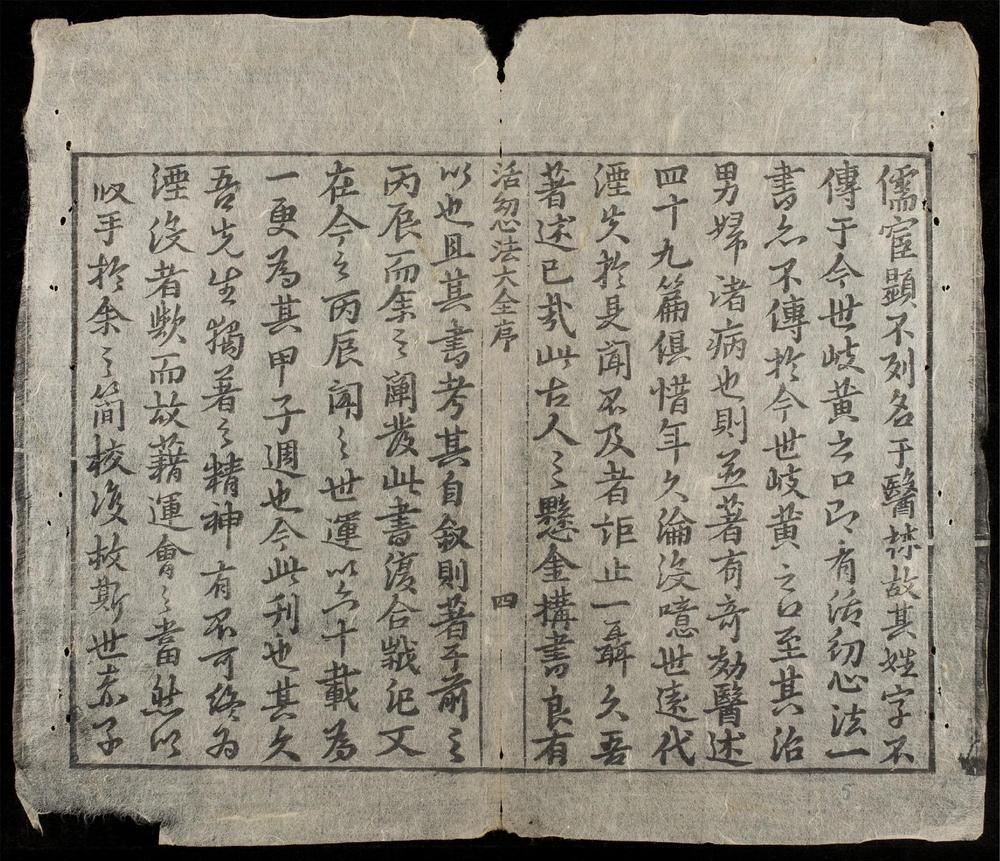 儒宦顯不列名于醫林故其姓字不
傳于今世岐黃之口即有活幼心法一
書亦不傳於今世岐黃之口至其治
男婦諸病也則並著有奇効醫述
四十九篇俱惜年久淪沒噫世遠代
湮失於見聞不及者詎止一聶久吾
著述已哉此古人之懸金構書良有
活幼心法大全序
四
以也且其書考其自敘則著于前之
丙辰而余之闡發此書復合戢祀又
在今之丙辰聞之世運以六十載為
一更為其甲子週也今此刊也其久
吾先生獨著之精神有不可終為
湮沒者歟而故藉運會之當然以
収手於余之簡校復於斯世赤子
5